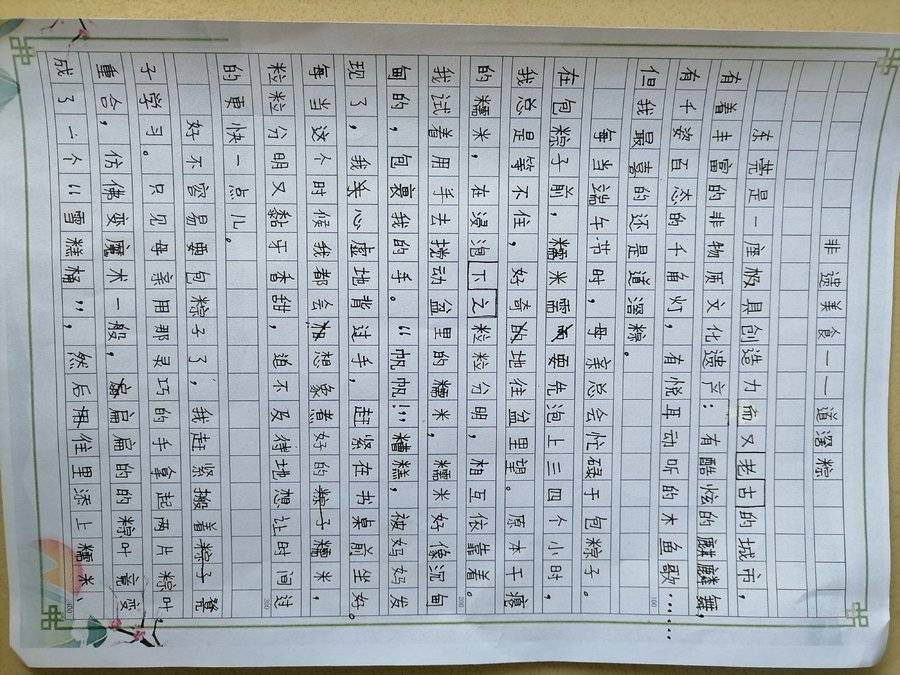 非遗美食——道滘粽
东莞是一座极具创造力而又老古的城市，
有着丰富的非物质文化遗产：有酷炫的麒麟舞，
有千姿百态的千角灯，有悦耳动听的木鱼歌……
但我最喜的还是道滘粽。
每当端午节时，母亲总会忙碌于包粽子。
在包粽子前，糯米需要先泡上三四个小时，
我总是等不住，好奇地往盆里望。原本干瘪
的糯米，在浸泡下之粒粒分明，相互依靠着。
我试着用手去搅动盆里的糯米，糯米好像沉甸
甸的，包裹我的手。“帆帆！”糟糕，被妈妈发
现了，我心虚地背过手，赶紧在书桌前坐好。
每当这个时候我都会想象煮好的糯米，
粒粒分明又黏牙香甜，迫不及待地想让时间过
的更快一点儿。
好不容易要包粽子了，我赶紧搬着凳
子学习。只见母亲用那灵巧的手拿起两片粽叶
重合，仿佛变魔术一般，扁扁的粽叶竟变
成了一个“雪糕桶”，然后往里添上糯米
100
200
300
400